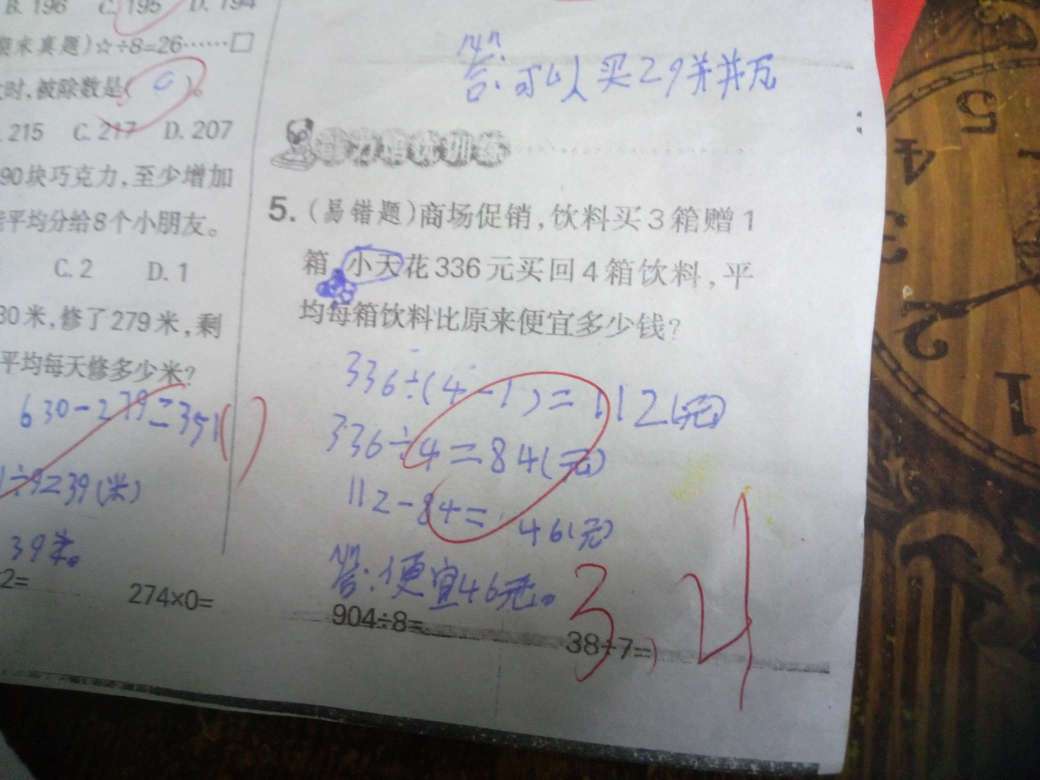 B. 196 C. 195 D. 194
末真题)☆÷8=26……□
时,被除数是( C )。
215 C. 217 D. 207
90块巧克力,至少增加
平均分给8个小朋友。
C. 2 D. 1
30米,修了279米,剩
平均每天修多少米?
630-279=351( )
÷9=39(米)
39米。
2=
274×0=
答:可以买29并并瓦
5.(易错题)商场促销,饮料买3箱赠1
箱,小天花336元买回4箱饮料,平
均每箱饮料比原来便宜多少钱?
336÷(4-1)=112(元)
336÷4=84(元)
112-84=46(元)
答:便宜46元。
904÷8=
38÷7=
34